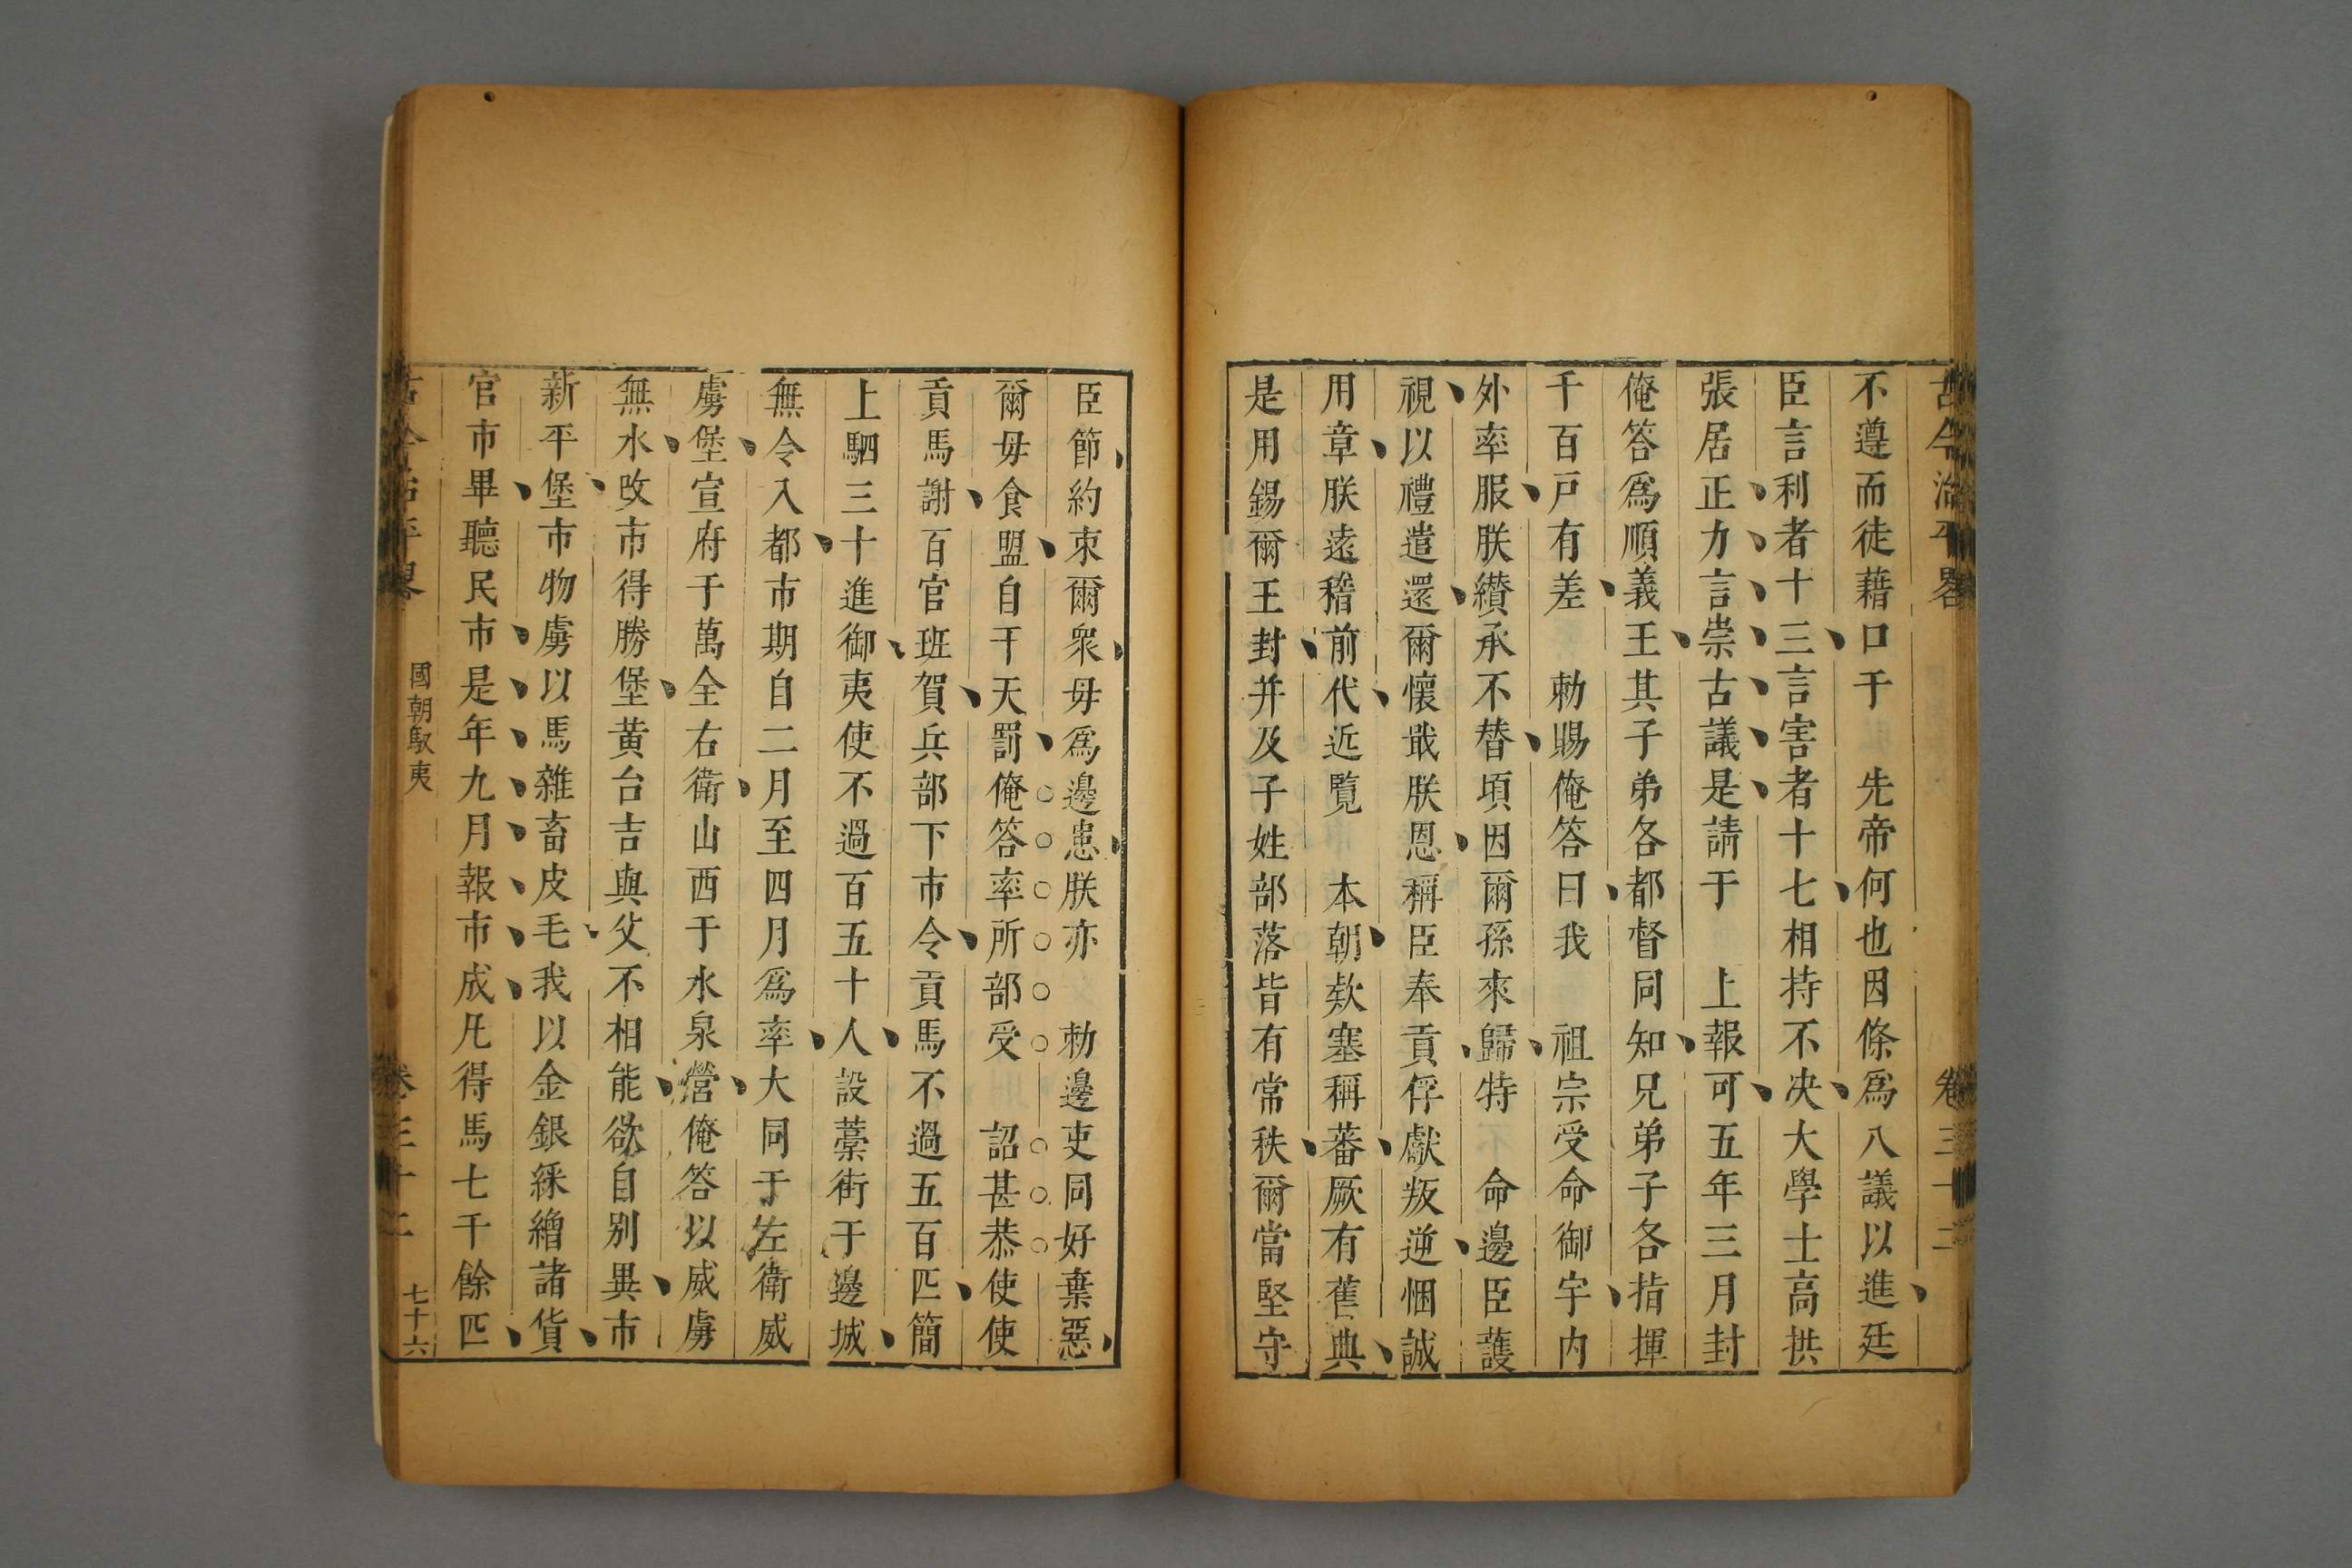 古今治平畧 卷三十二
不遵而徒藉口于 先帝何也因條爲八議以進廷
臣言利者十三言害者十七相持不决大學士高拱
張居正力言崇古議是請于 上報可五年三月封
俺答爲順義王其子弟各都督同知兄弟子各指揮
千百戸有差 勅賜俺答曰我 祖宗受命御宇內
外率服朕纘承不替頃因爾孫來歸特 命邊臣護
視以禮遣還爾懷戢朕恩稱臣奉貢俘獻叛逆悃誠
用章朕遠稽前代近覽 本朝欵塞稱蕃厥有舊典
是用錫爾王封并及子姓部落皆有常秩爾當堅守
臣節約束爾衆毋爲邊患朕亦 勅邊吏同好棄惡
爾毋食盟自干天罰俺答率所部受 詔甚恭使使
貢馬謝百官班賀兵部下市令貢馬不過五百匹簡
上駟三十進御夷使不過百五十人設藁街于邊城
無令入都市期自二月至四月爲率大同于左衛威
虜堡宣府于萬全右衛山西于水泉營俺答以威虜
無水攺市得勝堡黃台吉與父不相能欲自別異市
新平堡市物虜以馬雜畜皮毛我以金銀綵繒諸貨
官市畢聽民市是年九月報市成凡得馬七千餘匹
古今治平畧 國朝馭夷 卷三十二 七十六